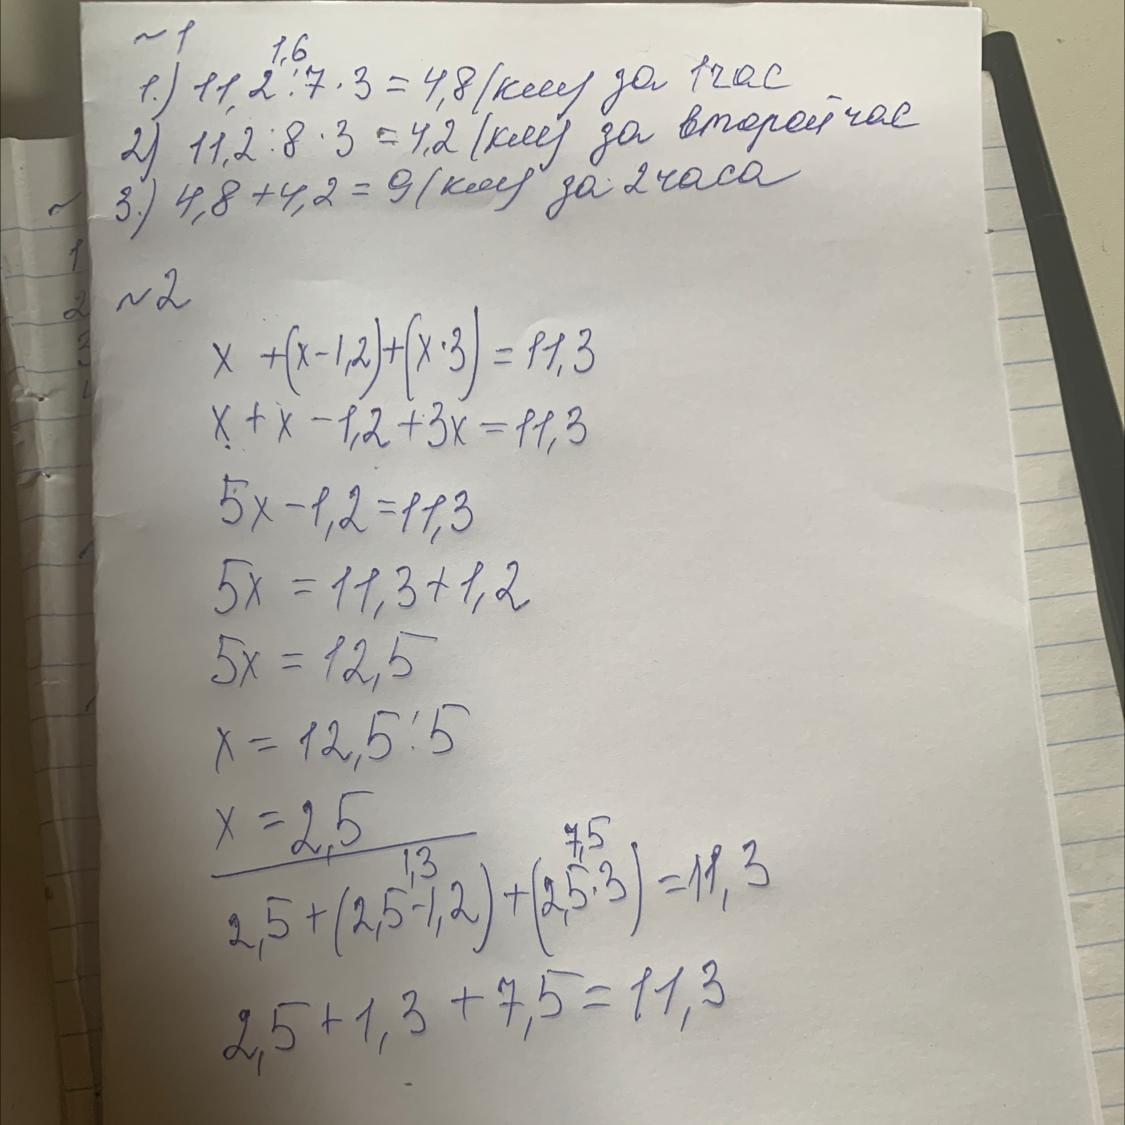 ~1
1.) 11,2 : 7 · 3 = 4,8 (км) за 1 час
1,6
2) 11,2 : 8 · 3 = 4,2 (км) за второй час
3.) 4,8 + 4,2 = 9 (км) за 2 часа
~2
x + (x - 1,2) + (x · 3) = 11,3
x + x - 1,2 + 3x = 11,3
5x - 1,2 = 11,3
5x = 11,3 + 1,2
5x = 12,5
x = 12,5 : 5
x = 2,5
1,3 7,5
2,5 + (2,5 - 1,2) + (2,5 · 3) = 11,3
2,5 + 1,3 + 7,5 = 11,3